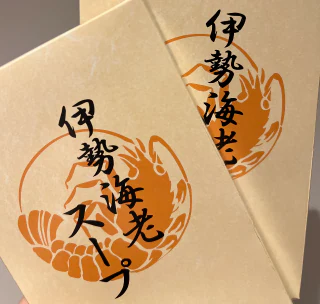 伊勢海老
スープ
伊勢海老